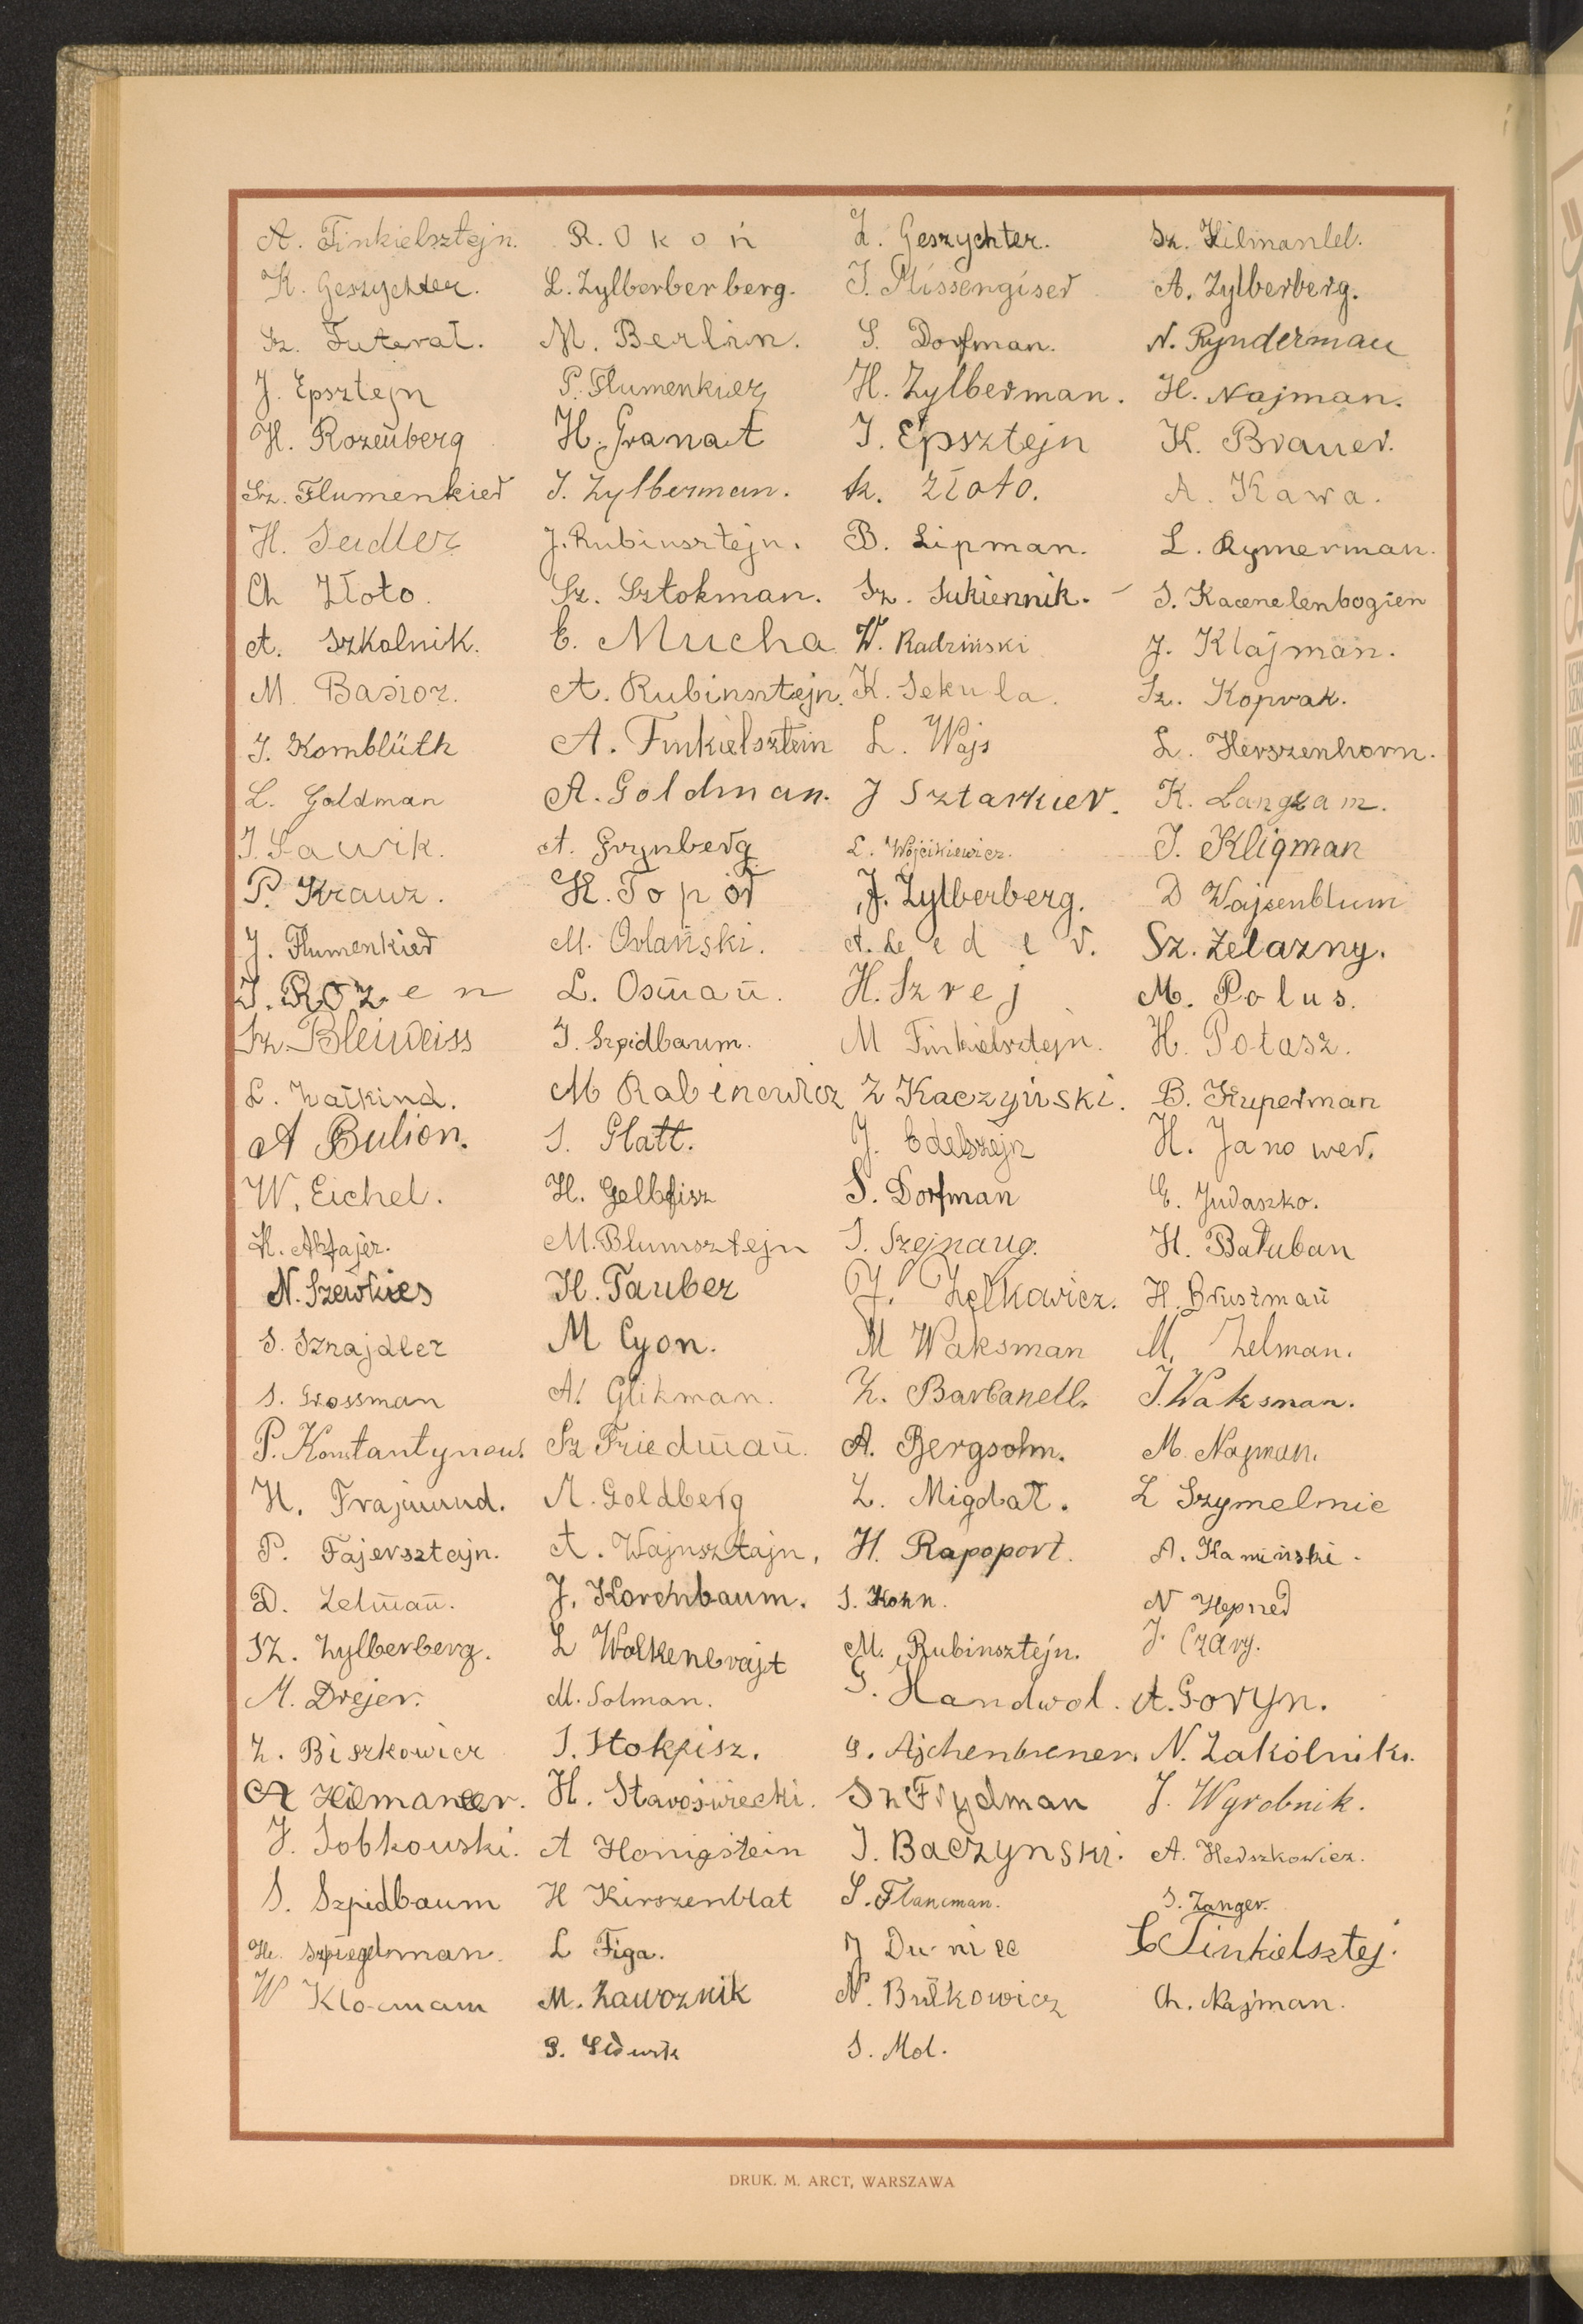 A. Finkielsztejn. R. Okoń Z. Geszychter. Sz.
K. Geszychter. L. Zylberberberg. I. Missengiser A. Zylberberg.
Sz. Futerał. M. Berlin. S. Dorfman. N. Rynderman
J. Epsztejn P. Flumenkier H. Zylberman. H. Najman.
H. Rozenberg H. Granat I. Epsztejn K. Brauer.
Sz. Flumenkier I. Zylberman. Sz. Złoto. A. Kawa.
H. Sendler J. Rubinsztejn. B. Lipman. L. Rymerman.
Ch Złoto. Sz. Sztokman. Sz. Sukiennik. S. Kacenelenbogien
A. Szkolnik. E. Mucha W. Radziński J. Klajman.
M Basior. A. Rubinsztejn. K. Sekula. Sz. Koprak.
I. Kornblüth A. Finkielsztein L. Wajs L. Herszenhorn.
L. Goldman A. Goldman. J Sztarkier. K. Langzam.
I. Sawik. A. Grynberg L. Wójcikiewicz. I. Kligman
P. Krawz. K. Topór J. Zylberberg. D Wajsenblum
J. Flumenkier M. Orlański. A. Lederer. Sz. Żelazny.
I. Rozen L. Osman. H. Szrej M. Polus.
Sz. Bleiweiss I. Szpidbaum. M Finkielsztejn. H. Potasz.
L. Załkind. M Rabinowicz Z Kaczyński. B. Kuperman
A Bulion. S. Glatt. J. Edelsztejn H. Janower.
W. Eichel. H. Gelbfisz S. Dorfman E. Judaszko.
K. Akfajer. M. Blumsztejn I. Szejnaug. H. Bałaban
N. Szewkies H. Tauber J. Zelkowicz. H. Brustman
S. Sznajdler M Cyon. M Waksman M. Zelman.
S. Grossman A. Glikman. Z. Barbanell. I. Waksman.
P. Konstantynow. Sz Friedman. A. Bergsohn. M. Najman.
H. Frajmund. A. Goldberg Z. Migdał. L Szymelmic
P. Fajersztajn. A. Wajnsztajn. H. Rapoport. A. Kamiński.
D. Zelman. J. Korenbaum. S. Kohn. N Hepner
Sz. Zylberberg. L Wolkenbrajt M. Rubinsztejn. J. Czary.
M. Drejer. M. Solman. S. Handwol. A. Goryn.
Z. Biszkowicz I. Stokfisz. G. Ajchenbrener. N. Zakólnik.
A H. Staroświecki. Sz Frydman J. Wyrobnik.
J. Sobkowski. A Honigstein I. Baczynski. A. Herszkowicz.
S. Szpidbaum H Kirszenblat S. Flancman. S. Zanger.
He. Szpiegelman. L Figa. J Duniec C Finkielsztej.
W Klocmam M. Zawoznik N. Brułkowicz Ch. Najman.
S. Mol.
DRUK. M. ARCT, WARSZAWA